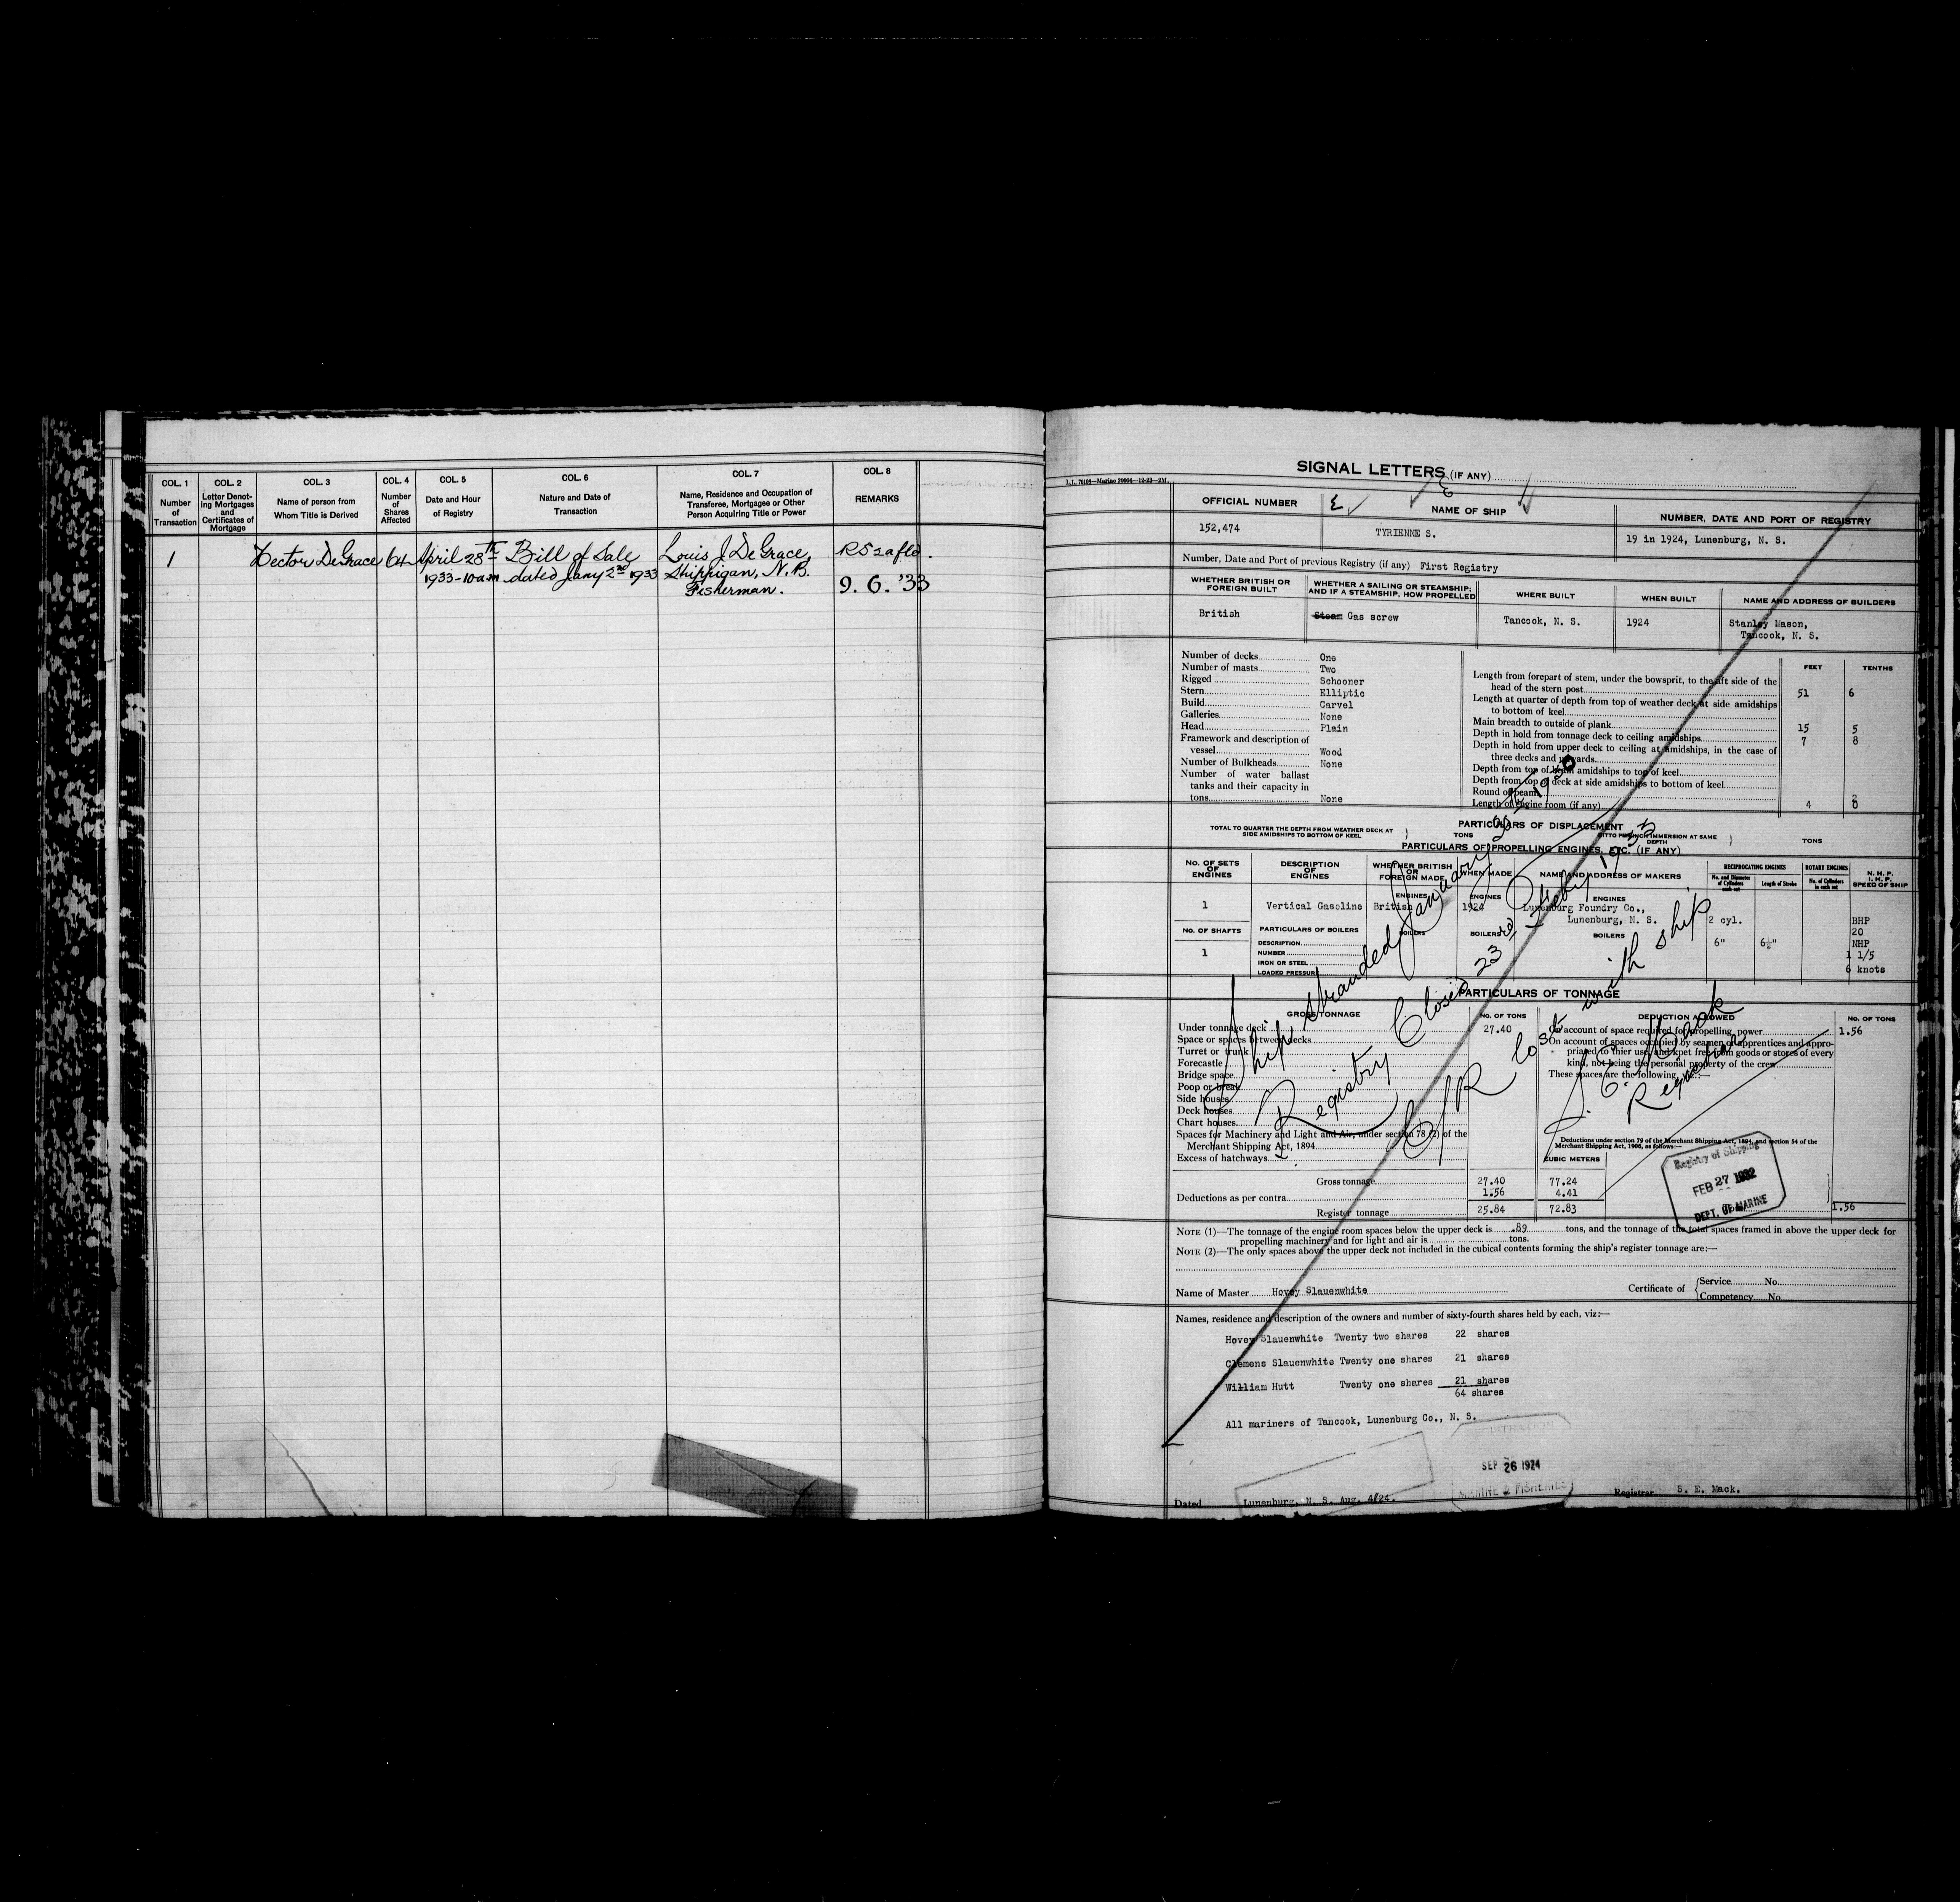 COL. 1 COL. 2 COL. 3 COL. 4 COL. 5 COL. 6 COL. 7 COL. 8
Number of Transaction
Letter Denoting Mortgages and Certificates of Mortgage
Name of person from Whom Title is Derived
Number of Shares Affected
Date and Hour of Registry
Nature and Date of Transaction
Name, Residence and Occupation of Transferee, Mortgagee or Other Person Acquiring Title or Power
REMARKS
1 Hector DeGrace 64 April 28th Bill of Sale Louis J DeGrace,
1933-10 a.m. dated Jany 2nd 1933 Shippigan, N.B.
Fisherman. 9. 6. '33
SIGNAL LETTERS (IF ANY)
OFFICIAL NUMBER NAME OF SHIP NUMBER, DATE AND PORT OF REGISTRY
152,474 TYRIENNE S. 19 in 1924, Lunenburg, N. S.
Number, Date and Port of previous Registry (if any) First Registry
WHETHER BRITISH OR FOREIGN BUILT
WHETHER A SAILING OR STEAMSHIP; AND IF A STEAMSHIP, HOW PROPELLED
WHERE BUILT WHEN BUILT NAME AND ADDRESS OF BUILDERS
British Steam Gas screw Tancook, N. S. 1924 Stanley Mason,
Tancook, N. S.
Number of decks One
Number of masts Two
Rigged Schooner
Stern Elliptic
Build Carvel
Galleries None
Head Plain
Framework and description of
vessel Wood
Number of Bulkheads None
Number of water ballast
tanks and their capacity in
tons None
FEET TENTHS
Length from forepart of stem, under the bowsprit, to the aft side of the
head of the stern post 51 6
Length at quarter of depth from top of weather deck at side amidships
to bottom of keel
Main breadth to outside of plank 15 5
Depth in hold from tonnage deck to ceiling amidships 7 8
Depth in hold from upper deck to ceiling at amidships, in the case of
three decks and upwards
Depth from top of beam amidships to top of keel
Depth from top of deck at side amidships to bottom of keel
Round of beam 2
Length of engine room (if any) 4 0
PARTICULARS OF DISPLACEMENT
TOTAL TO QUARTER THE DEPTH FROM WEATHER DECK AT
SIDE AMIDSHIPS TO BOTTOM OF KEEL TONS
DITTO PER INCH IMMERSION AT SAME
DEPTH TONS
PARTICULARS OF PROPELLING ENGINES, ETC. (IF ANY)
No. OF SETS OF ENGINES
DESCRIPTION OF ENGINES
WHETHER BRITISH OR FOREIGN MADE
WHEN MADE
NAME AND ADDRESS OF MAKERS
RECIPROCATING ENGINES ROTARY ENGINES
No. and Diameter of Cylinders each set Length of Stroke No. of Cylinders in each set
N. H. P.
I. H. P.
SPEED OF SHIP
ENGINES ENGINES ENGINES
1 Vertical Gasoline British 1924 Lunenburg Foundry Co.,
Lunenburg, N. S. 2 cyl. BHP
20
No. OF SHAFTS PARTICULARS OF BOILERS BOILERS BOILERS BOILERS
6" 6½" NHP
1 1/5
6 knots
1 DESCRIPTION
NUMBER
IRON OR STEEL
LOADED PRESSURE
PARTICULARS OF TONNAGE
GROSS TONNAGE No. OF TONS DEDUCTION ALLOWED No. OF TONS
Under tonnage deck 27.40
Space or spaces between decks
Turret or trunk
Forecastle
Bridge space
Poop or break
Side houses
Deck houses
Chart houses
Spaces for Machinery and Light and Air, under section 78 (2) of the
Merchant Shipping Act, 1894
Excess of hatchways
On account of space required for propelling power 1.56
On account of spaces occupied by seamen or apprentices and appro-
priated to thier use, and kpet free from goods or stores of every
kind, not being the personal property of the crew
These spaces are the following, viz:—
Deductions under section 79 of the Merchant Shipping Act, 1894, and section 54 of the
Merchant Shipping Act, 1906, as follows:—
CUBIC METERS
Gross tonnage 27.40 77.24
Deductions as per contra 1.56 4.41
Register tonnage 25.84 72.83 1.56
Ship stranded January
Registry Closed 23rd Feby
C/R lost with ship
S. E. Mack
Registrar
Registry of Shipping
FEB 27 1932
DEPT. OF MARINE
NOTE (1)—The tonnage of the engine room spaces below the upper deck is .89 tons, and the tonnage of the total spaces framed in above the upper deck for
propelling machinery and for light and air is tons.
NOTE (2)—The only spaces above the upper deck not included in the cubical contents forming the ship's register tonnage are:—
Name of Master Hovey Slauenwhite Certificate of Service No.
Competency No.
Names, residence and description of the owners and number of sixty-fourth shares held by each, viz:—
Hovey Slauenwhite Twenty two shares 22 shares
Clemens Slauenwhite Twenty one shares 21 shares
William Hutt Twenty one shares 21 shares
64 shares
All mariners of Tancook, Lunenburg Co., N. S.
SEP 26 1924
MARINE & FISHERIES
Dated Lunenburg, N. S. Aug. 4/24. Registrar S. E. Mack.